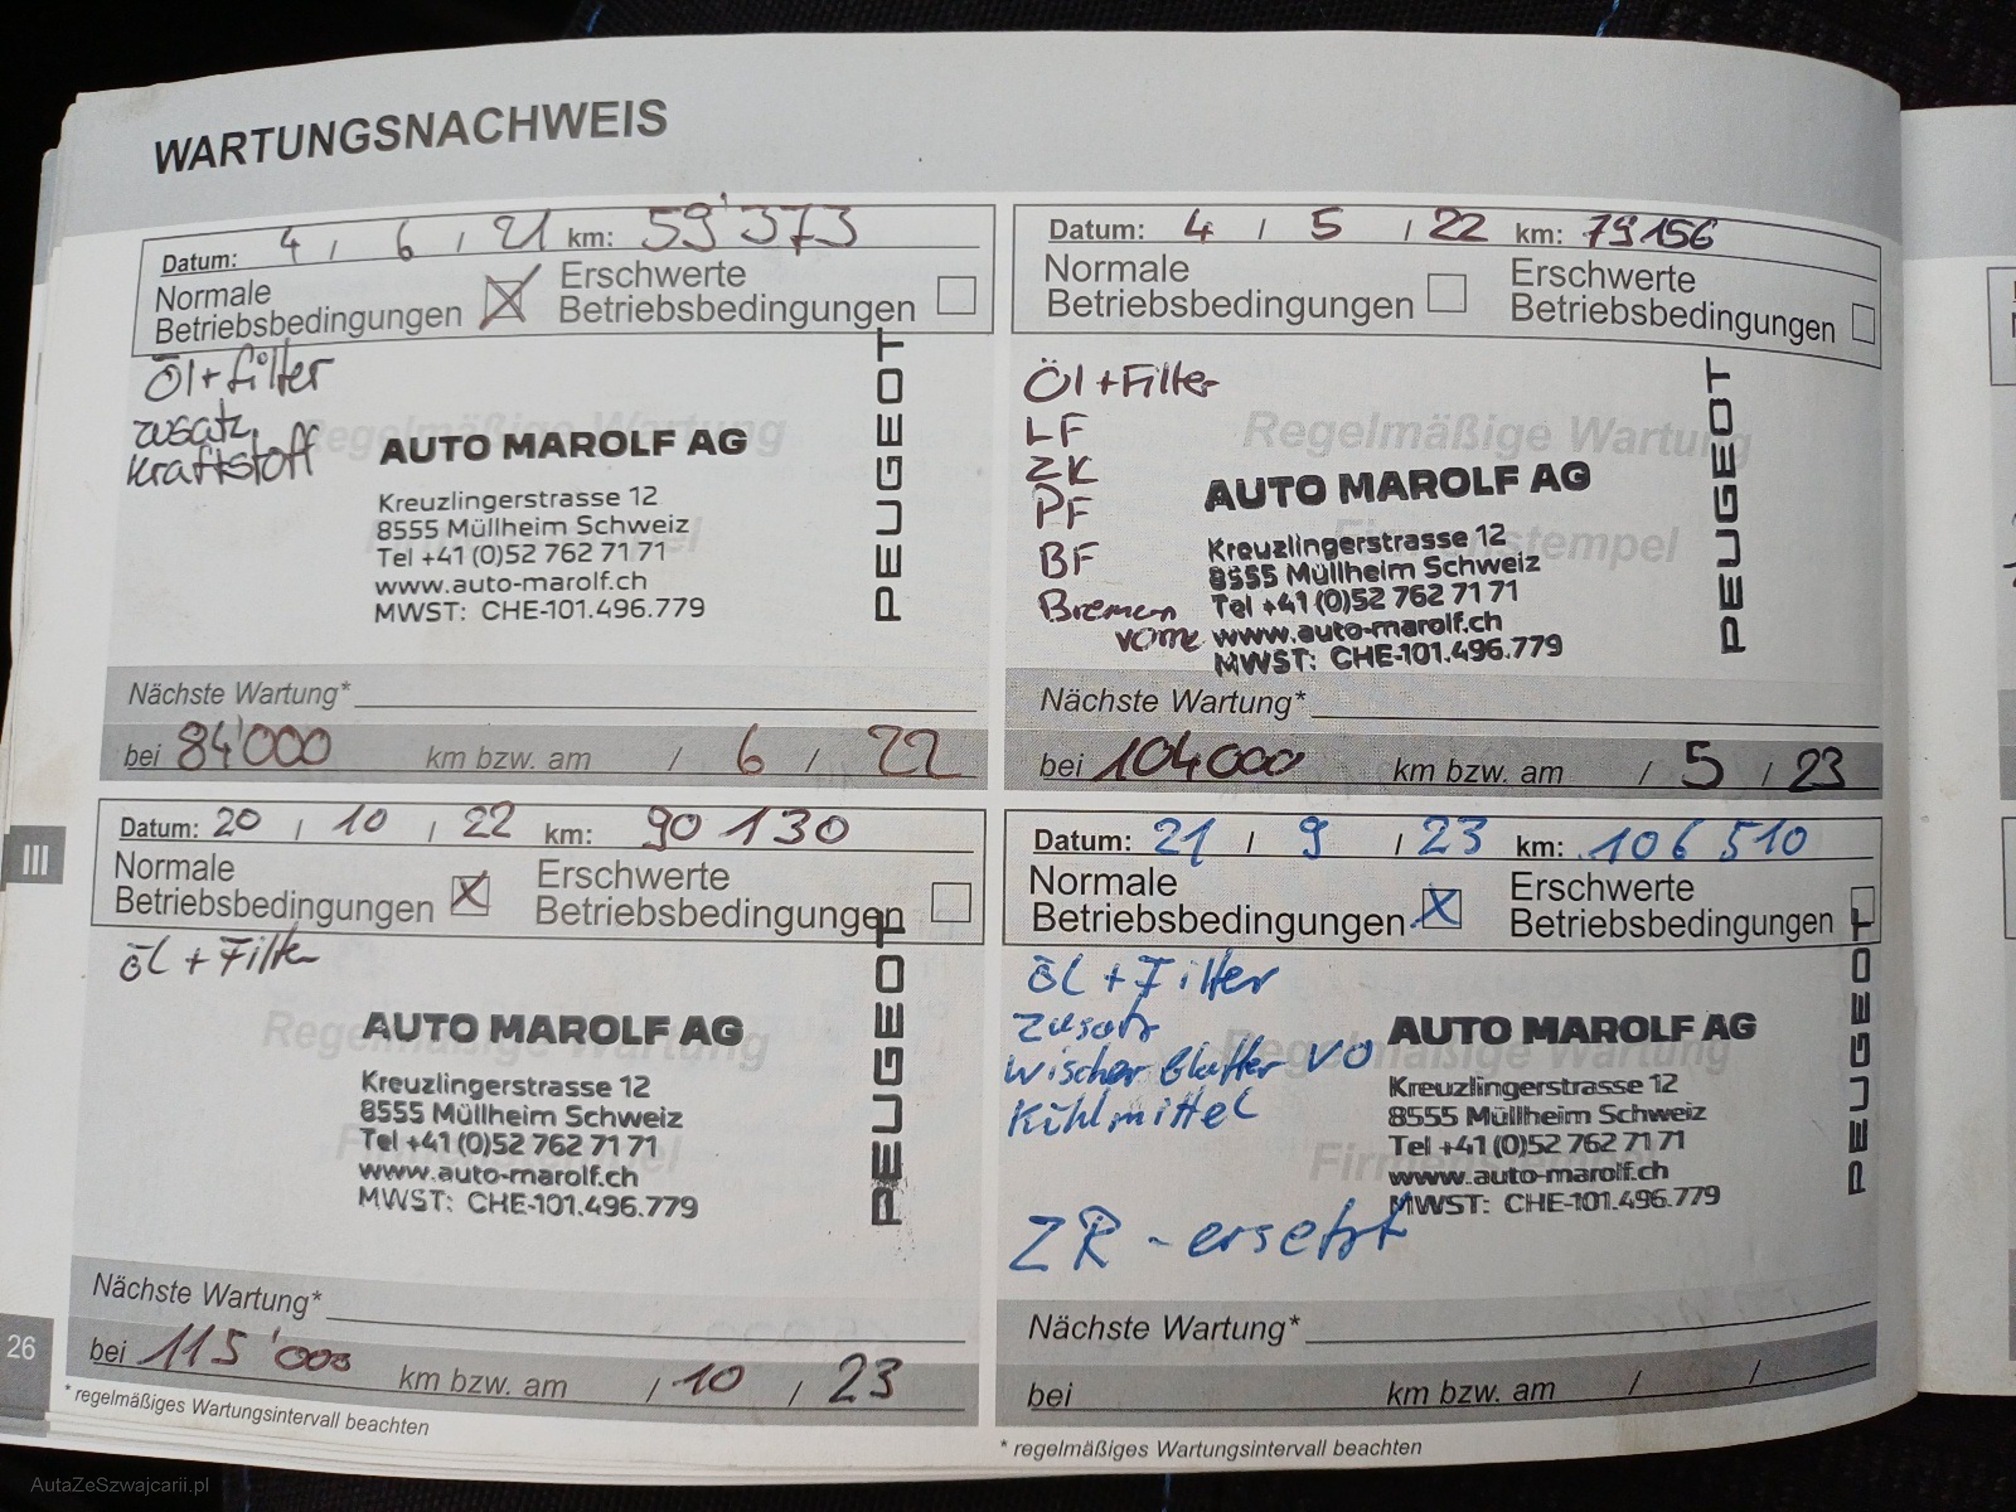 WARTUNGSNACHWEIS
Datum: 4 / 6 / 21 km: 59'373
Normale Betriebsbedingungen X Erschwerte Betriebsbedingungen
Öl + filter
zusatz
Kraftstoff
Regelmäßige Wartung
AUTO MAROLF AG
Kreuzlingerstrasse 12
8555 Müllheim Schweiz
Tel +41 (0)52 762 71 71
www.auto-marolf.ch
MWST: CHE-101.496.779
PEUGEOT
Nächste Wartung*
bei 84'000 km bzw. am / 6 / 22
Datum: 4 / 5 / 22 km: 79156
Normale Betriebsbedingungen Erschwerte Betriebsbedingungen
Öl + Filter
LF
ZK
PF
BF
Bremen
vorne
Regelmäßige Wartung
Firmenstempel
AUTO MAROLF AG
Kreuzlingerstrasse 12
8555 Müllheim Schweiz
Tel +41 (0)52 762 71 71
www.auto-marolf.ch
MWST: CHE-101.496.779
PEUGEOT
Nächste Wartung*
bei 104000 km bzw. am / 5 / 23
Datum: 20 / 10 / 22 km: 90 130
Normale Betriebsbedingungen X Erschwerte Betriebsbedingungen
öl + Filter
Regelmäßige Wartung
AUTO MAROLF AG
Kreuzlingerstrasse 12
8555 Müllheim Schweiz
Tel +41 (0)52 762 71 71
www.auto-marolf.ch
MWST: CHE-101.496.779
PEUGEOT
Nächste Wartung*
bei 115'000 km bzw. am / 10 / 23
* regelmäßiges Wartungsintervall beachten
Datum: 21 / 9 / 23 km: 106 510
Normale Betriebsbedingungen X Erschwerte Betriebsbedingungen
öl + Filter
Zusatz
Wischer Blatter VO
Kühlmittel
ZR - ersetzt
Regelmäßige Wartung
AUTO MAROLF AG
Kreuzlingerstrasse 12
8555 Müllheim Schweiz
Tel +41 (0)52 762 71 71
www.auto-marolf.ch
MWST: CHE-101.496.779
PEUGEOT
Nächste Wartung*
bei km bzw. am / /
* regelmäßiges Wartungsintervall beachten
III
26
AutaZeSzwajcarii.pl